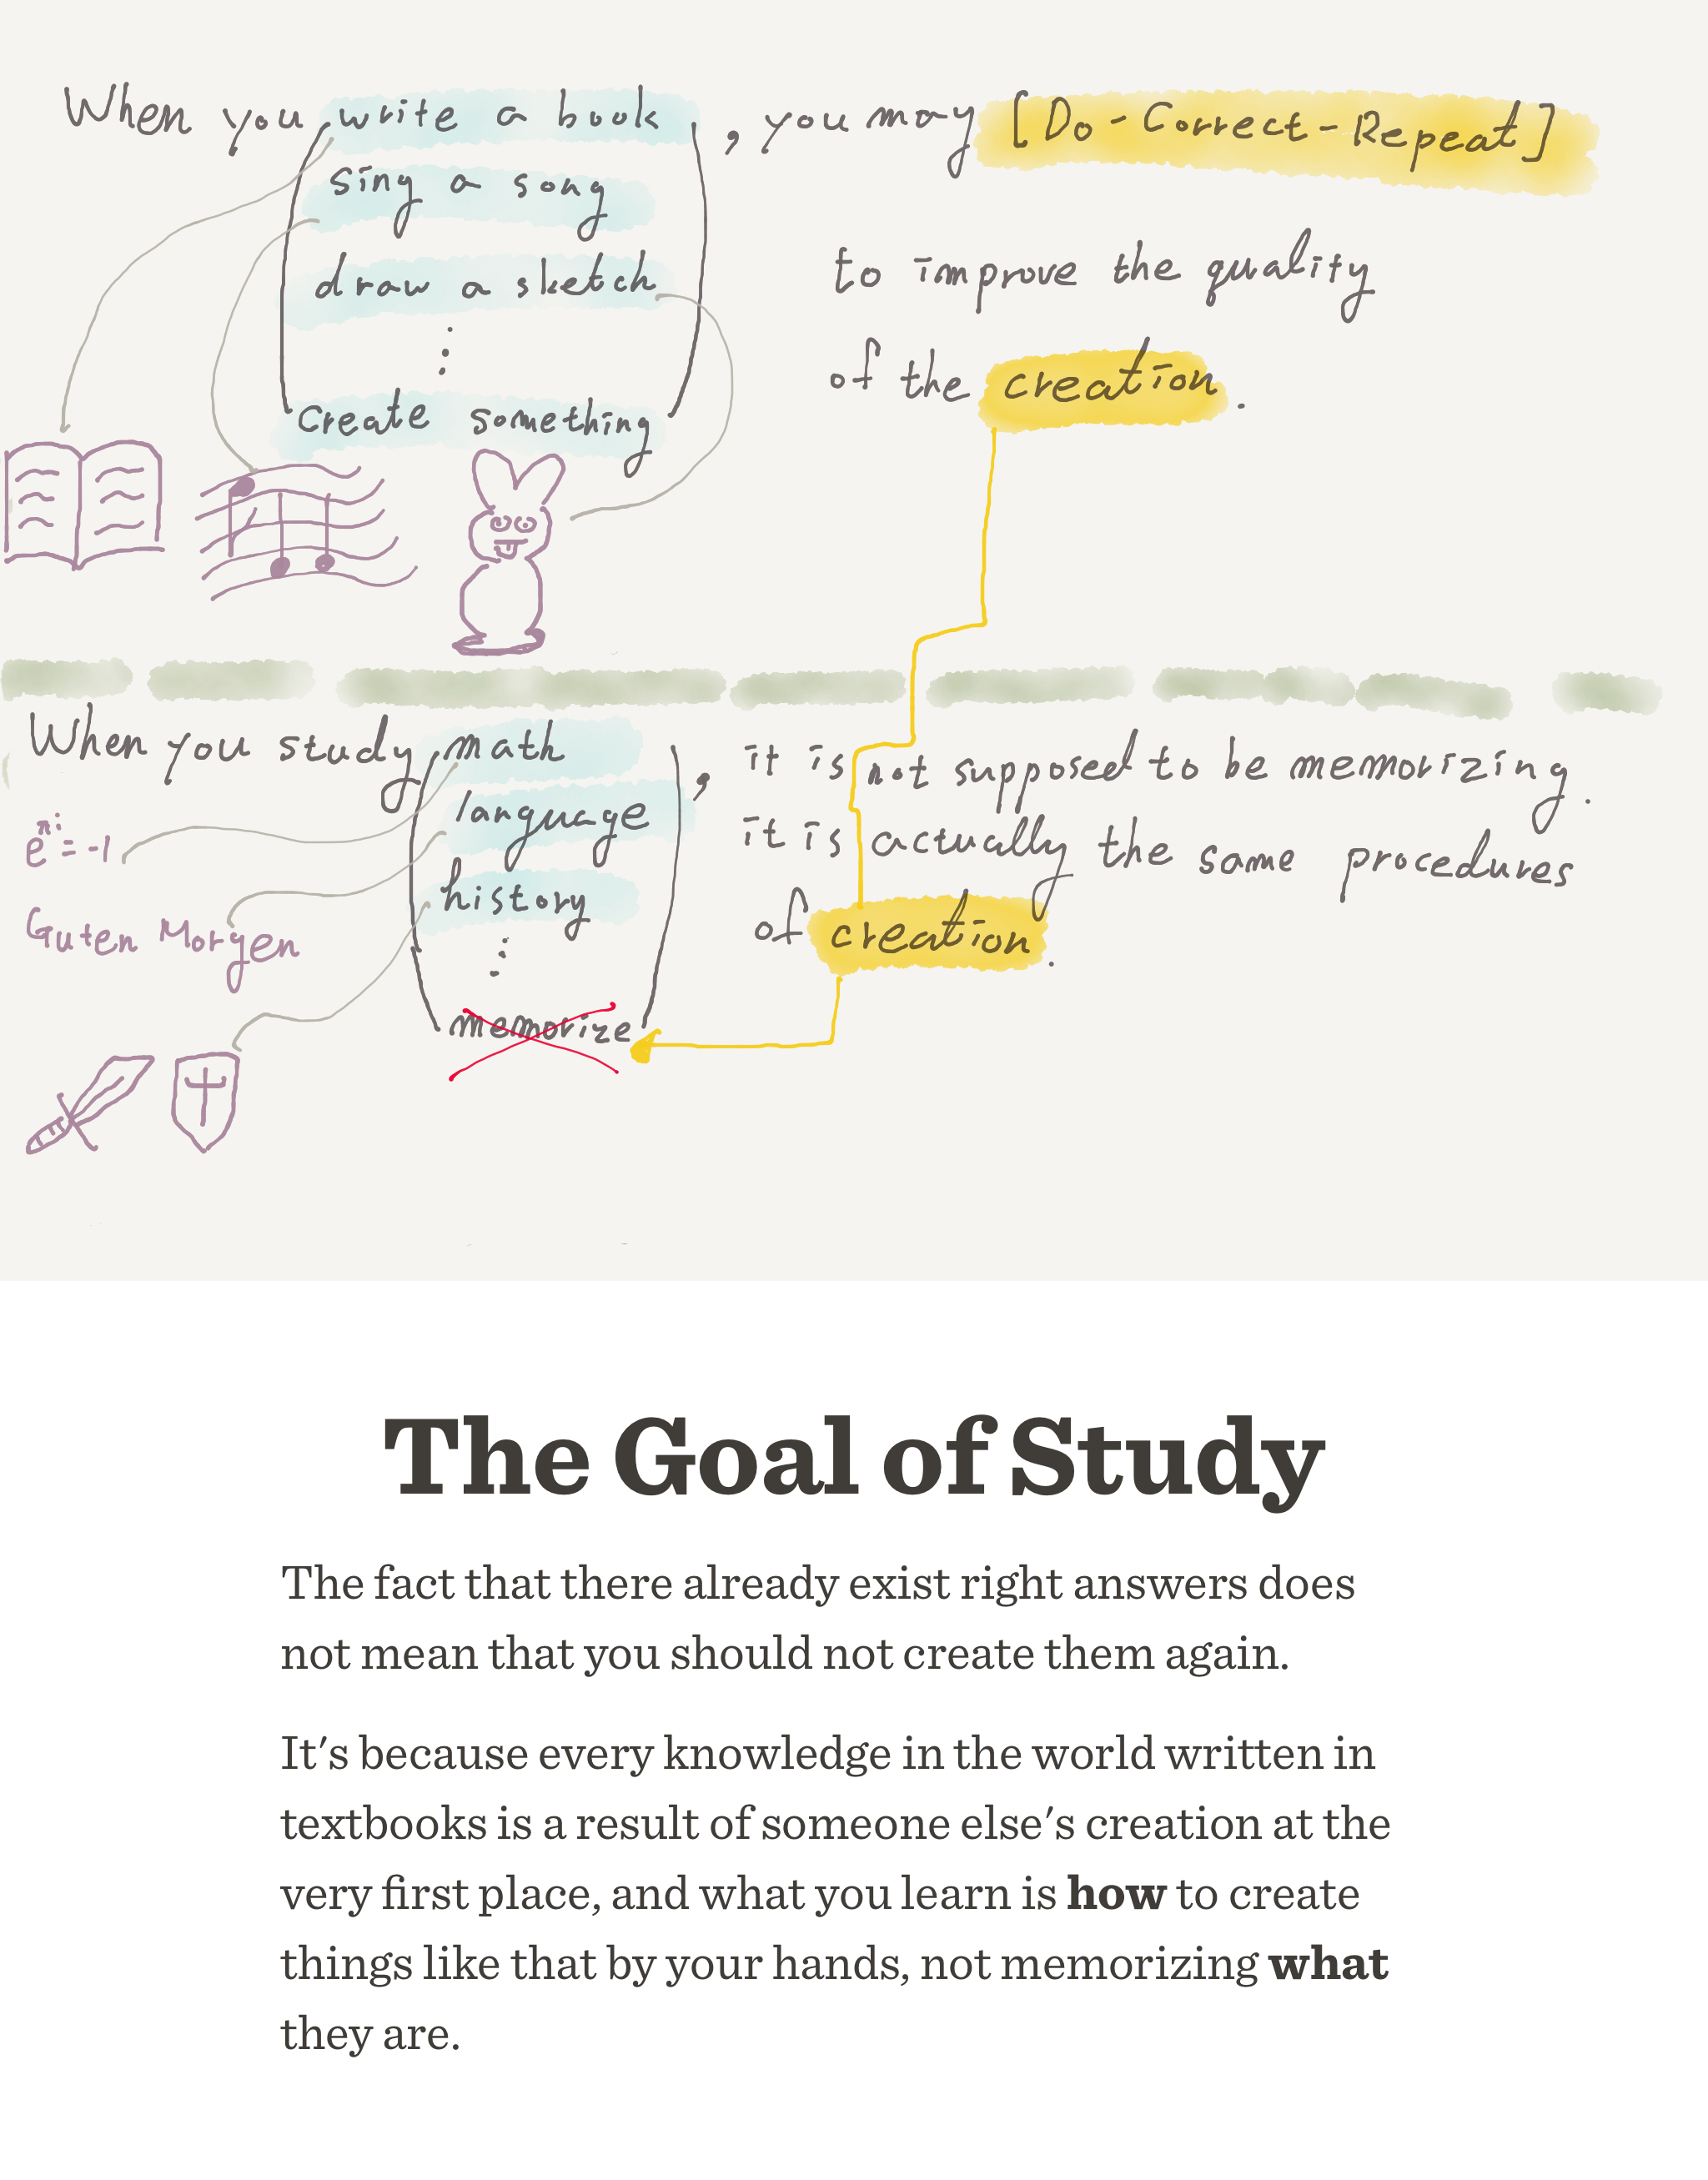 When you write a book, you may [Do-Correct-Repeat]
sing a song
draw a sketch
to improve the quality
of the creation.
Create something
When you study math, it is not supposed to be memorizing.
language
it is actually the same procedures
history
of creation.
memorize
e^πi = -1
Guten Morgen
The Goal of Study
The fact that there already exist right answers does
not mean that you should not create them again.
It's because every knowledge in the world written in
textbooks is a result of someone else's creation at the
very first place, and what you learn is how to create
things like that by your hands, not memorizing what
they are.